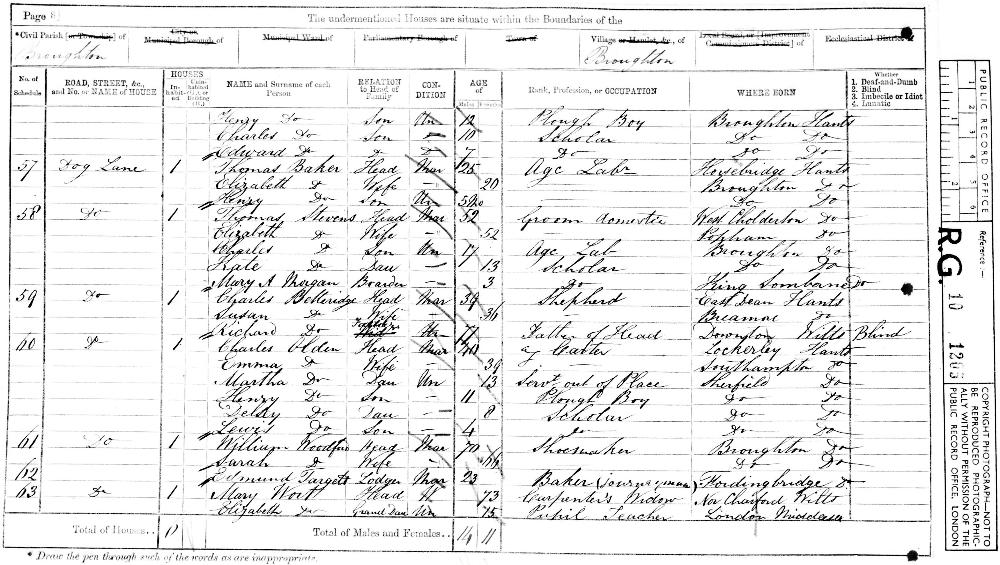 Page 8
The undermentioned Houses are situate within the Boundaries of the
*Civil Parish [or Township] of
City or Municipal Borough of
Municipal Ward of
Parliamentary Borough of
Town of
Village or Hamlet, &c., of
Local Board, or [Improvement Commissioners District] of
Ecclesiastical District of
Broughton Broughton
No. of Schedule
ROAD, STREET, &c., and No. or NAME of HOUSE
HOUSES
Inhabited
Uninhabited (U.), or Building (B.)
NAME and Surname of each Person
RELATION to Head of Family
CONDITION
AGE of
Males Females
Rank, Profession, or OCCUPATION
WHERE BORN
Whether
1. Deaf-and-Dumb
2. Blind
3. Imbecile or Idiot
4. Lunatic
Henry Do Son Un 12 Plough Boy Broughton Hants
Charles Do Son — 10 Scholar Do Do
Edward Do Do 7 Do Do Do
57 Dog Lane 1 Thomas Baker Head Mar 25 Agc Labr Horsebridge Hants
Elizabeth Do Wife — 20 Broughton Do
Henry Do Son Un Do Do
58 Do 1 Thomas Stevens Head Mar 52 Groom domestic West Cholderton Do
Elizabeth Do Wife — 52 Popham Do
Charles Do Son Un 17 Agc Lab Broughton Do
Kate Do Dau — 13 Scholar Do Do
Mary A Morgan Boarder — 3 Do King Somborne Do
59 Do 1 Charles Betteridge Head Mar 39 Shepherd East Dean Hants
Susan Do Wife — 36 Breamore Do
Richard Do Father Un 77 Father of Head Downton Wilts Blind
60 Do 1 Charles Olden Head Mar 40 Carter Lockerley Hants
Emma Do Wife — 39 Southampton Do
Martha Do Dau Un 13 Servt out of Place Sherfield Do
Henry Do Son — 11 Plough Boy Do Do
Do Dau — 8 Scholar Do Do
Lewis Do Son — 4 Do Do Do
61 Do 1 William Woodford Head Mar 70 Shoemaker Broughton Do
Sarah Do Wife — 66 Do Do
62 Edmund Targett Lodger Mar 23 Baker (Journeyman) Fordingbridge Do
63 Do 1 Mary Head W 73 Carpenter's Widow Nor Charford Wilts
Elizabeth Do Grand Dau Un 15 Pupil Teacher London Middlesex
Total of Houses.. Total of Males and Females.. 14 11
* Draw the pen through such of the words as are inappropriate.
PUBLIC RECORD OFFICE
1 2 3 4 5 6
1 2
Reference:—
R.G. 10 1203
COPYRIGHT PHOTOGRAPH—NOT TO BE REPRODUCED PHOTOGRAPHICALLY WITHOUT PERMISSION OF THE PUBLIC RECORD OFFICE, LONDON